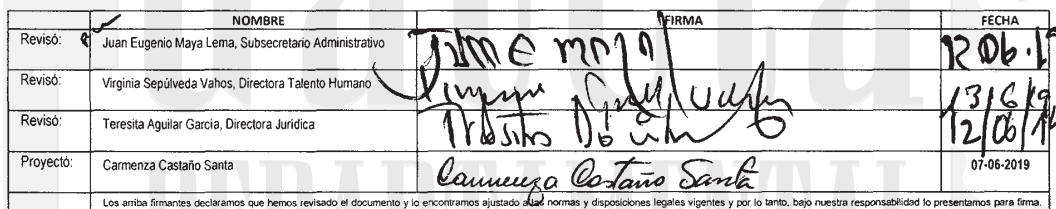 NOMBRE FIRMA FECHA
Revisó: Juan Eugenio Maya Lema, Subsecretario Administrativo 12 06.19
Revisó: Virginia Sepúlveda Vahos, Directora Talento Humano 13/6/19
Revisó: Teresita Aguilar García, Directora Jurídica 12/06/19
Proyectó: Carmenza Castaño Santa Carmenza Castaño Santa 07-06-2019
Los arriba firmantes declaramos que hemos revisado el documento y lo encontramos ajustado a las normas y disposiciones legales vigentes y por lo tanto, bajo nuestra responsabilidad lo presentamos para firma.